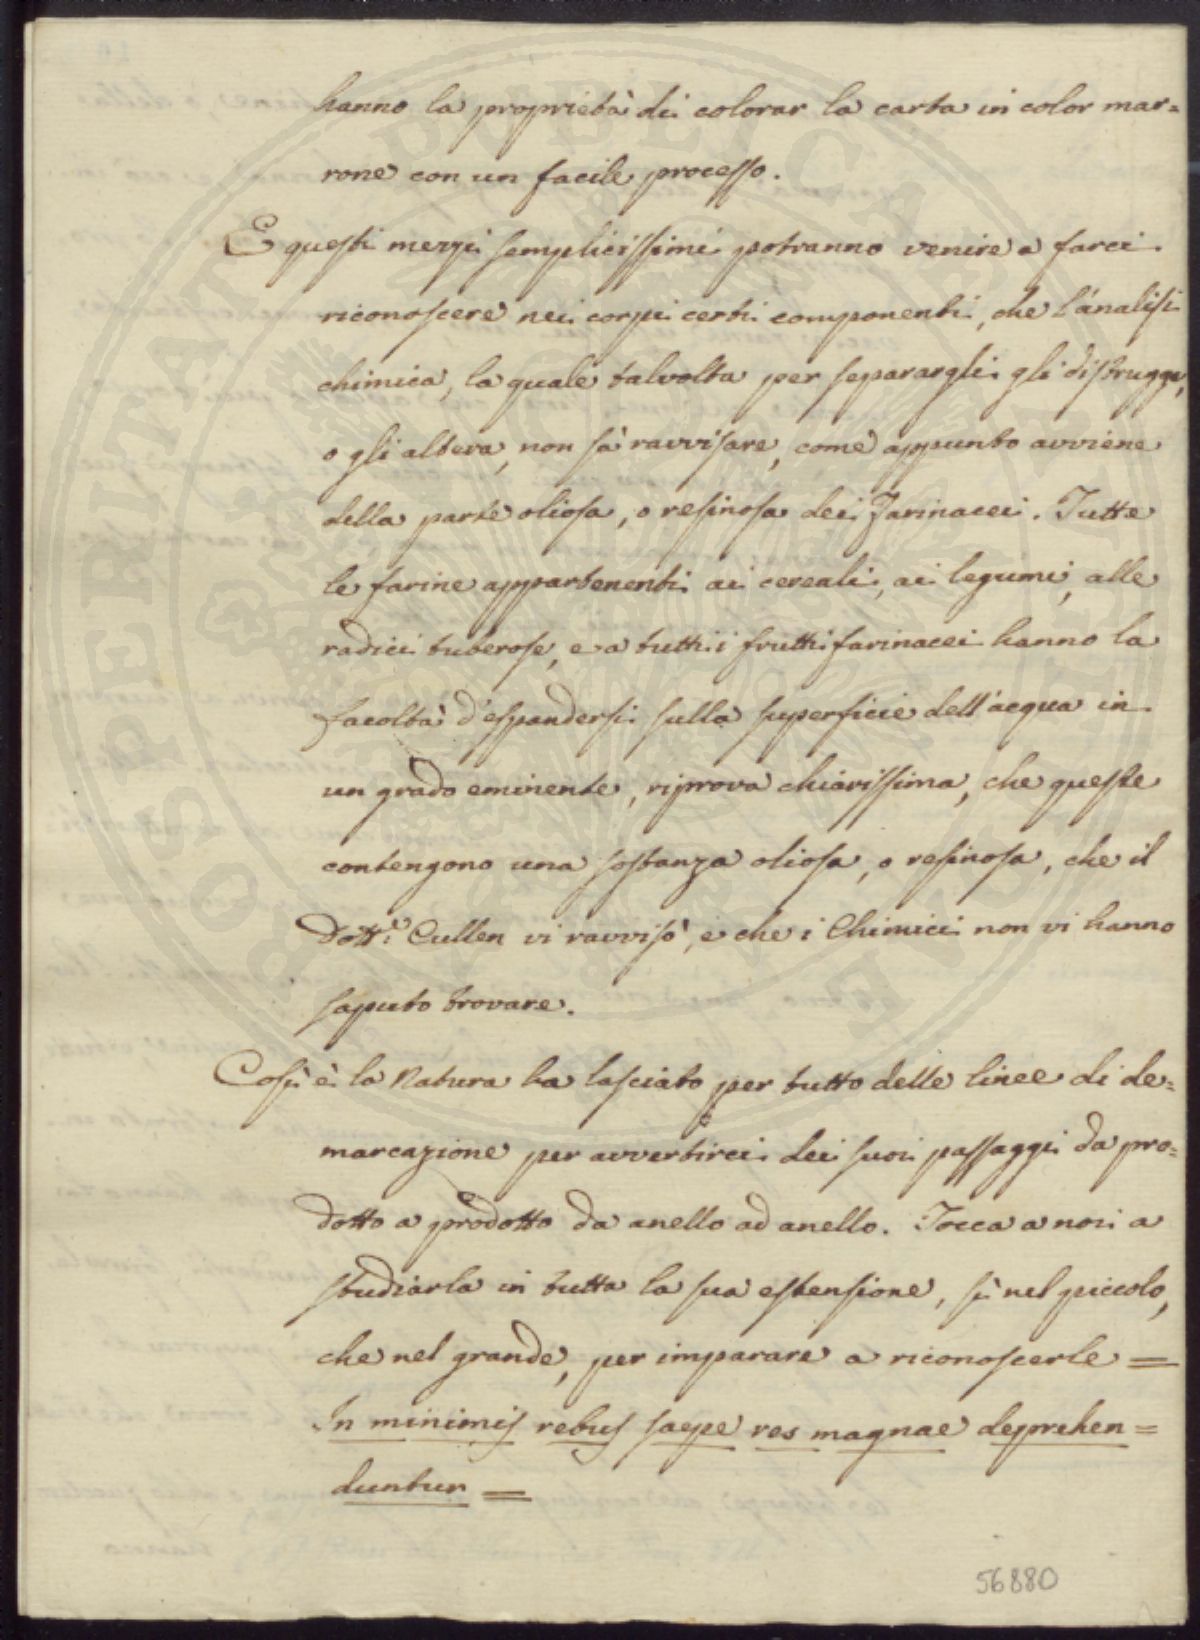 hanno la proprietà di colorar la carta in color mar=
rone con un facile processo.
E questi mezzi semplicissimi potranno venire a farci
riconoscere nei corpi certi componenti, che l'analisi
chimica, la quale talvolta per separargli gli distrugge,
o gli altera, non sà ravvisare, come appunto avviene
della parte oliosa, o resinosa dei Farinacei. Tutte
le farine appartenenti ai cereali, ai legumi, alle
radici tuberose, e a tutti i frutti farinacei hanno la
facoltà d'espandersi sulla superficie dell'acqua in
un grado eminente, riprova chiarissima, che queste
contengono una sostanza oliosa, o resinosa, che il
Dott.e Cullen vi ravvisò, e che i Chimici non vi hanno
saputo trovare.
Così è: la Natura ha lasciato per tutto delle linee di de=
marcazione per avvertirci dei suoi passaggi da pro=
dotto a prodotto da anello ad anello. Tocca a noi a
studiarla in tutta la sua estensione, sì nel piccolo,
che nel grande, per imparare a riconoscerle =
In minimis rebus saepe res magnae deprehen=
duntur =
56880
PROSPERITAT PUBLICAE AUGENDAE